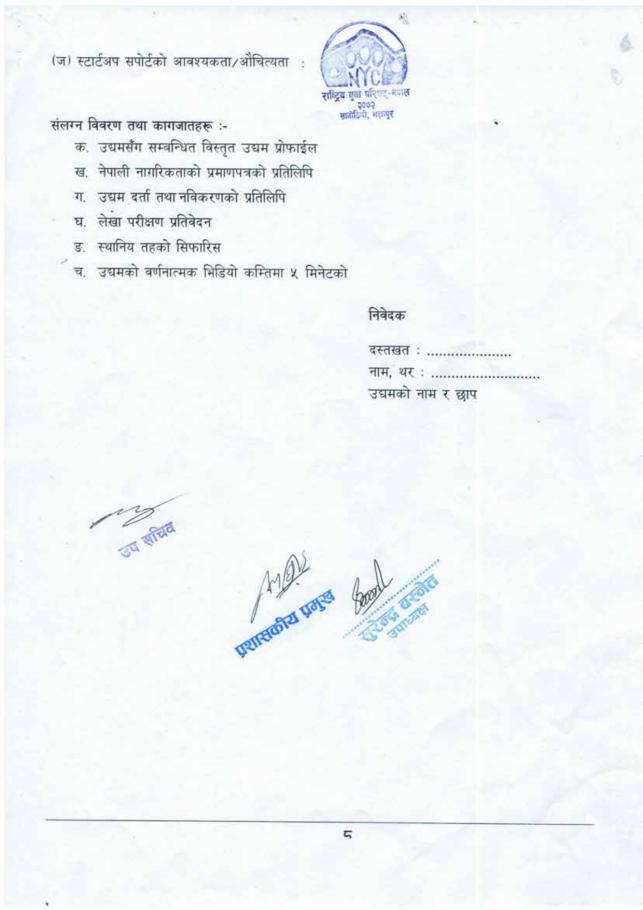 (ज) स्टार्टअप सपोर्टको आवश्यकता/औचित्यता :
NYC
राष्ट्रिय युवा परिषद्-नेपाल
२०७२
सानोठिमी, भक्तपुर
संलग्न विवरण तथा कागजातहरू :-
क. उद्यमसँग सम्बन्धित विस्तृत उद्यम प्रोफाईल
ख. नेपाली नागरिकताको प्रमाणपत्रको प्रतिलिपि
ग. उद्यम दर्ता तथा नविकरणको प्रतिलिपि
घ. लेखा परीक्षण प्रतिवेदन
ङ. स्थानिय तहको सिफारिस
च. उद्यमको वर्णनात्मक भिडियो कम्तिमा ५ मिनेटको
निवेदक
दस्तखत : .....................
नाम, थर : ...........................
उद्यमको नाम र छाप
उप सचिव
प्रशासकीय प्रमुख
सुरेन्द्र बस्नेत
उपाध्यक्ष
८